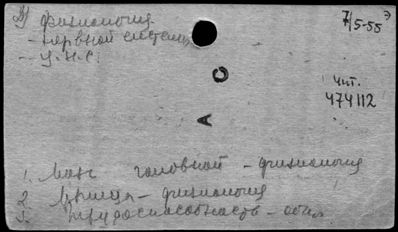 физиология
- нервной системы
- ц.н.с.
7/5-55
чит.
474112
А С
1. Мозг головной - физиология
2. - физиология
3. трудоспособность -